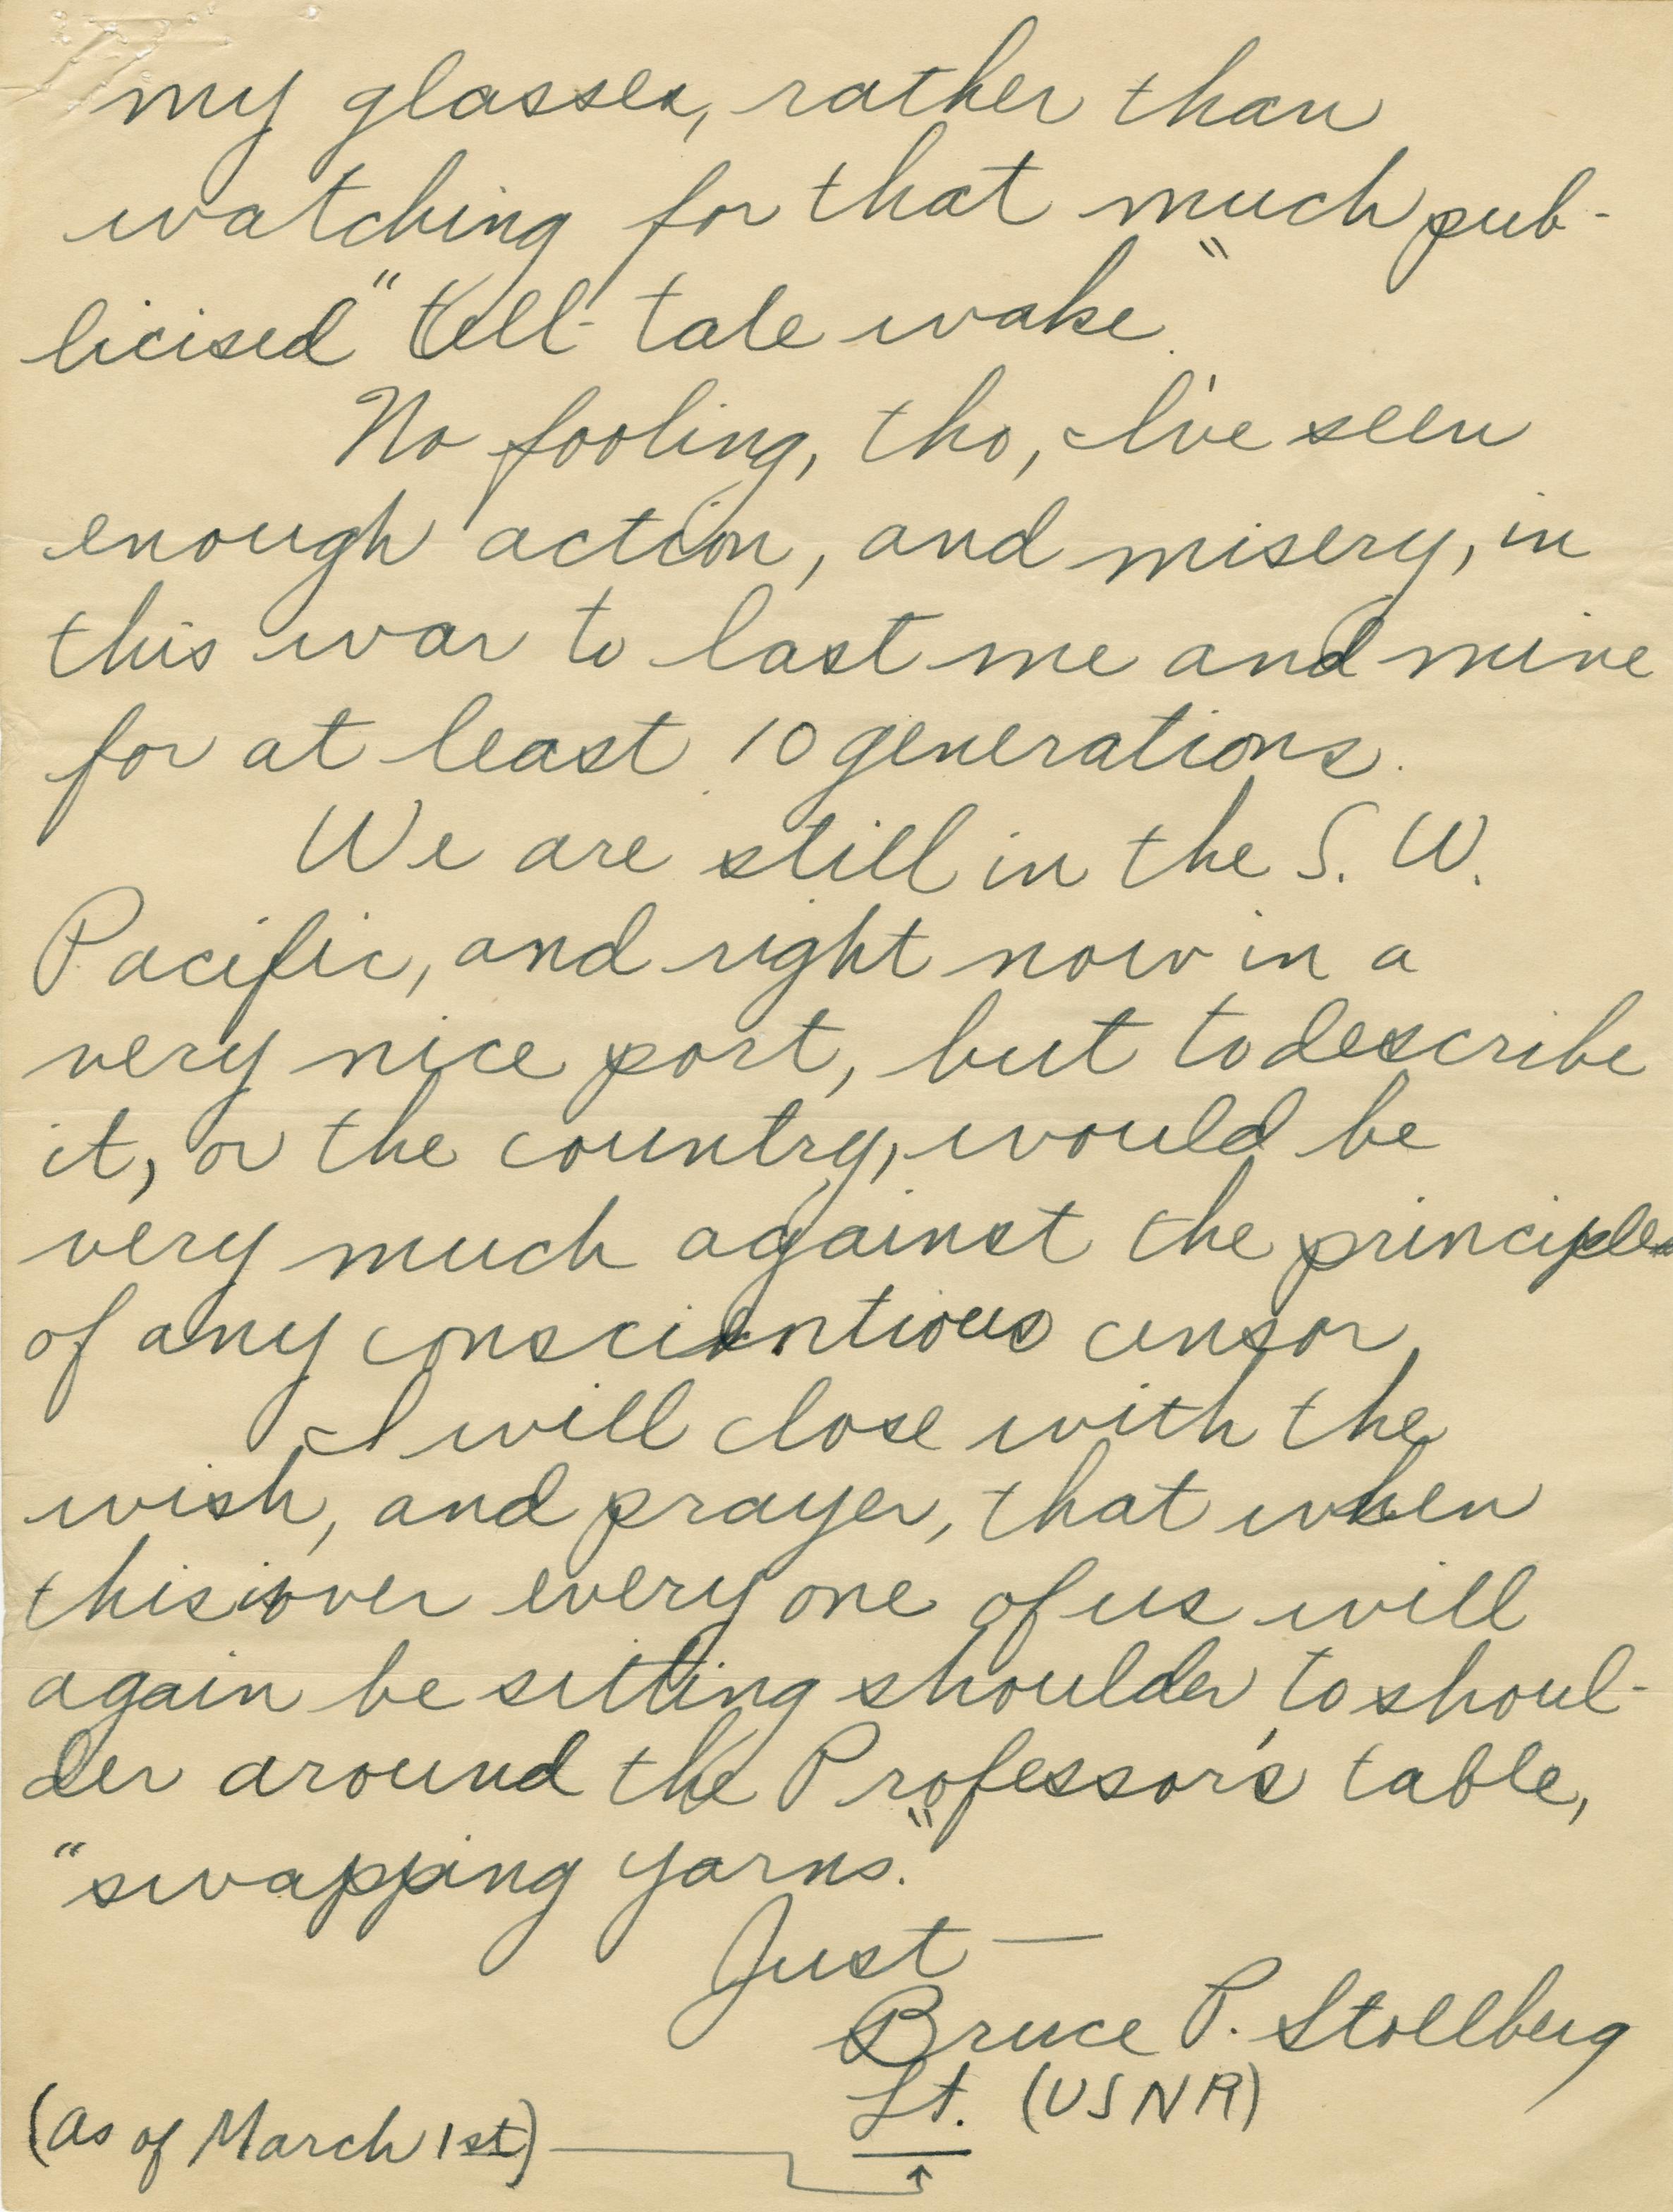 my glasses, rather than
watching for that much pub-
licised "tell-tale wake."
No fooling, tho, I've seen
enough action, and misery, in
this war to last me and mine
for at least 10 generations.
We are still in the S.W.
Pacific, and right now in a
very nice port, but to describe
it, or the country, would be
very much against the principles
of any conscientious censor.
I will close with the
wish, and prayer, that when
this is over every one of us will
again be sitting shoulder to shoul-
der around the Professor's table,
"swapping yarns."
Just —
Bruce P. Stollberg
Lt. (USNR)
(as of March 1st)